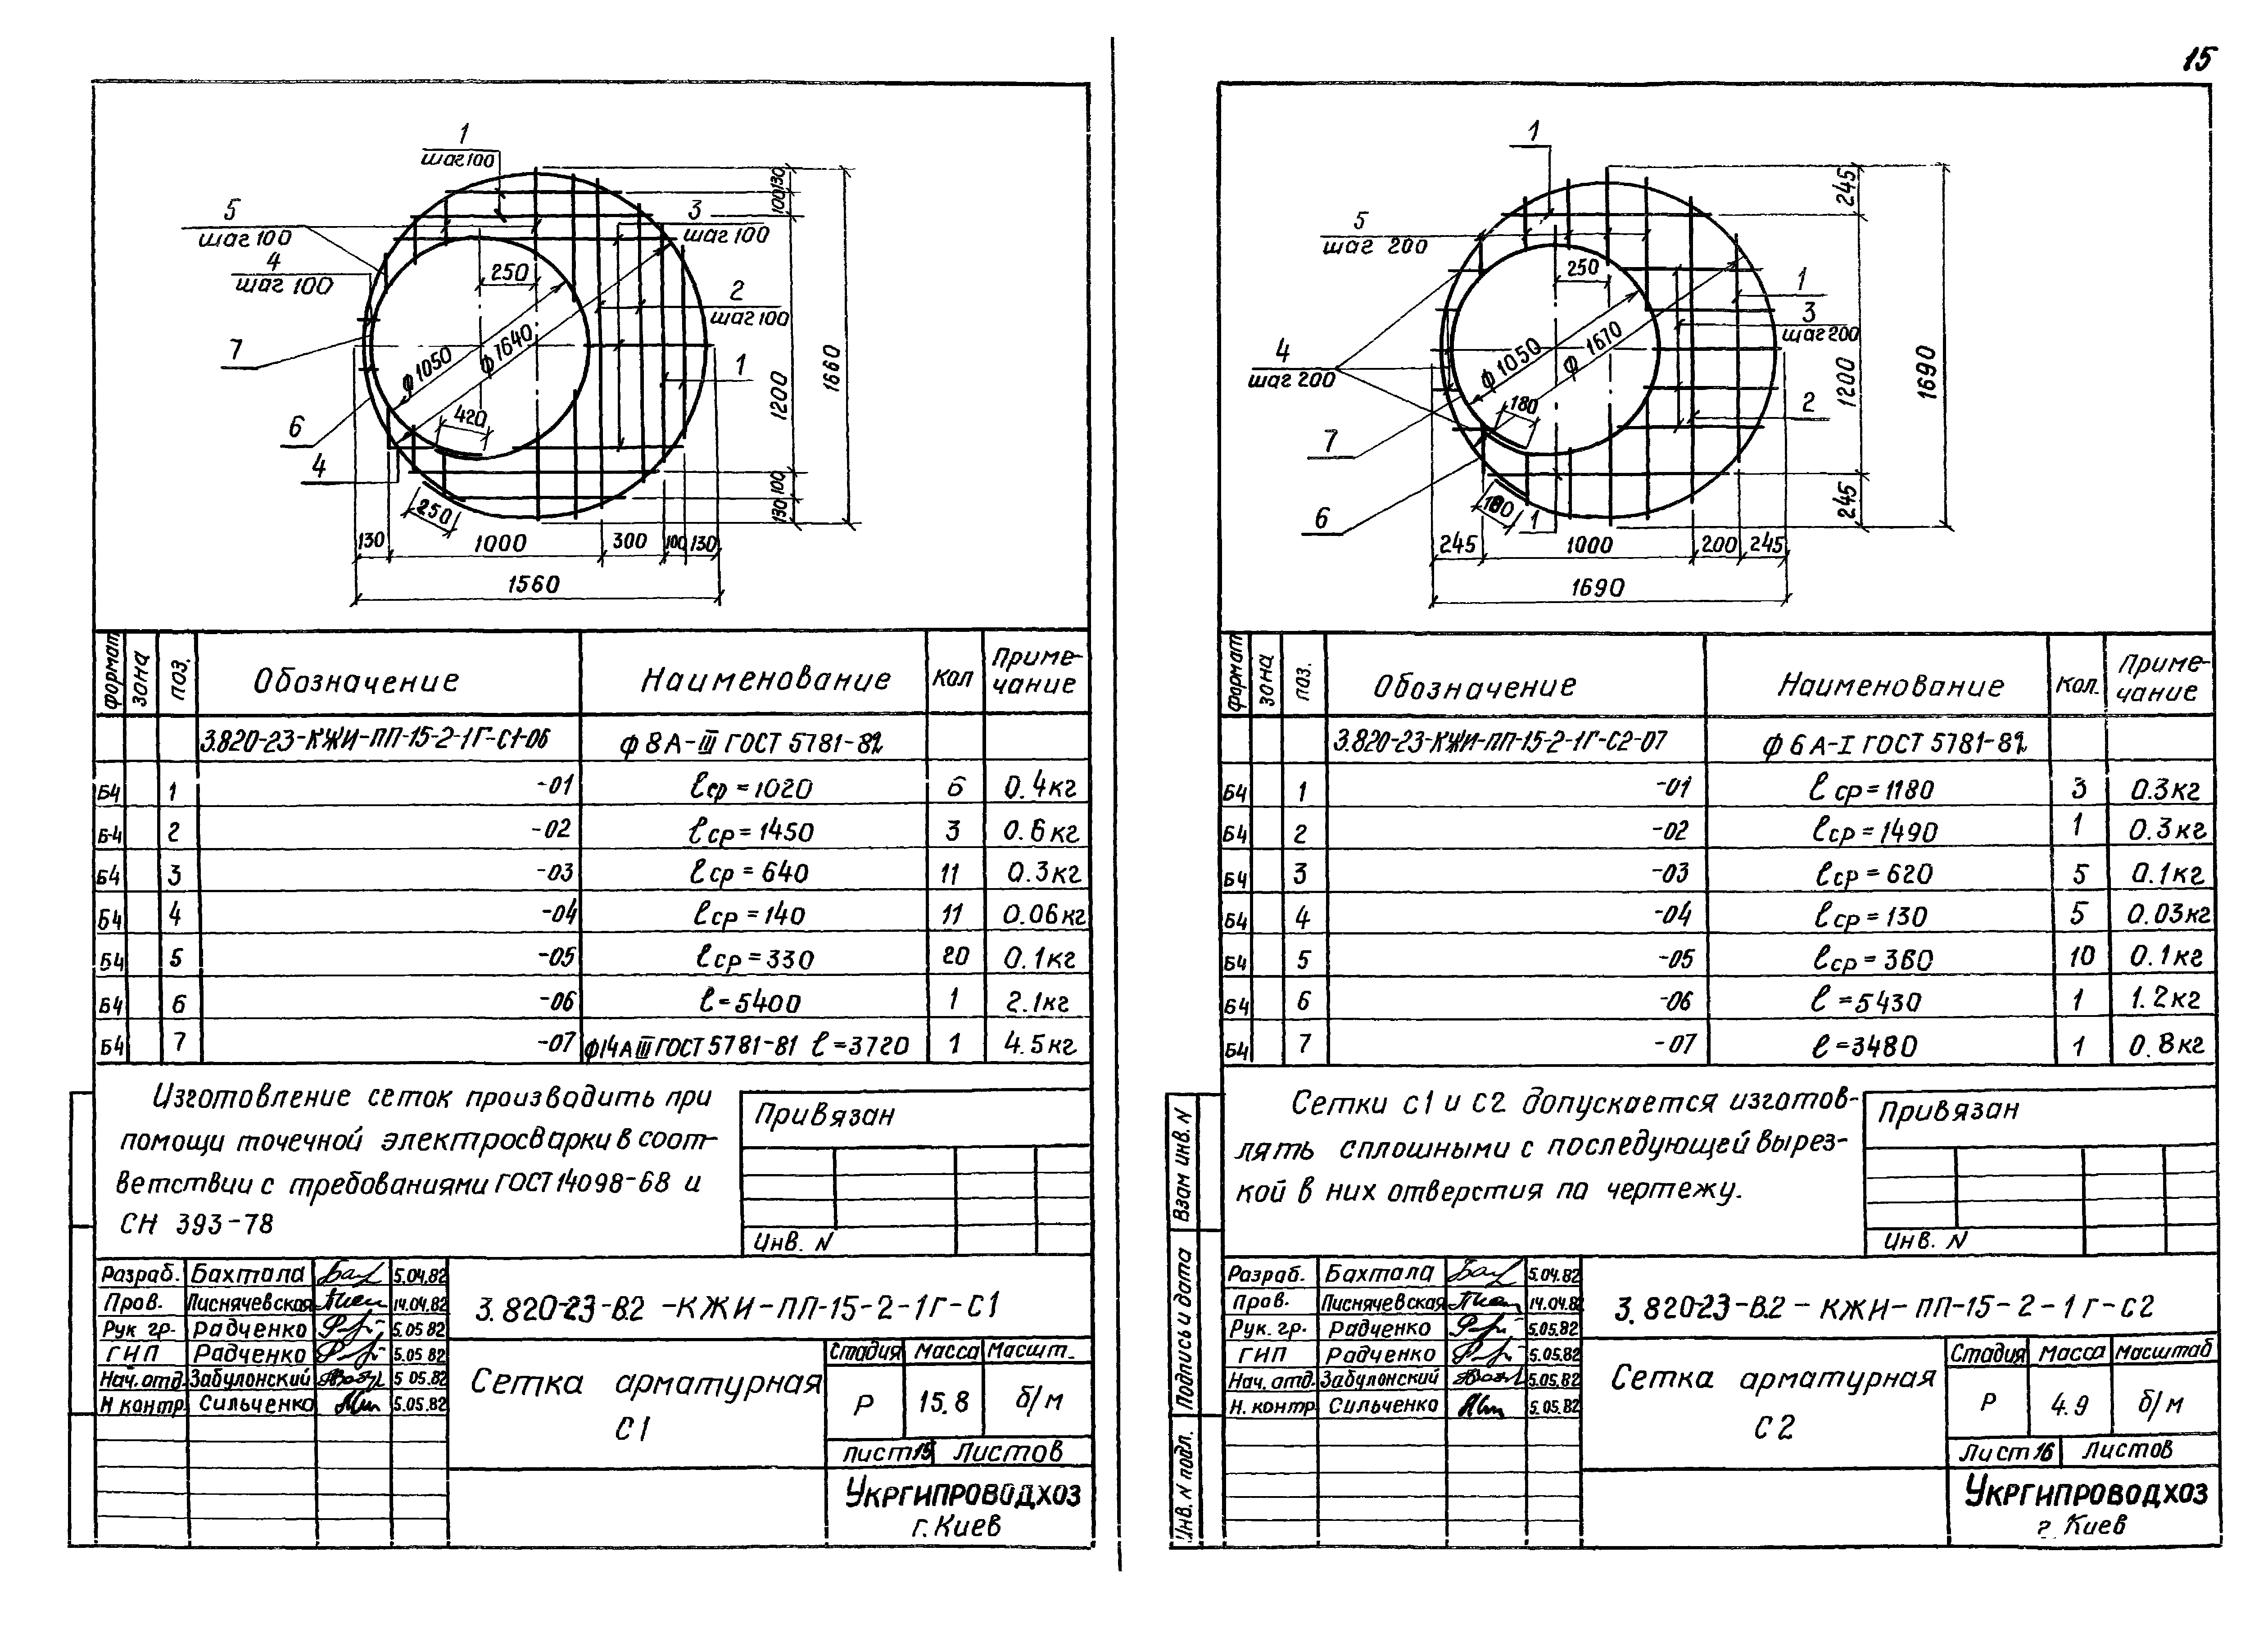 15
1
шаг 100
5
шаг 100
4
шаг 100
3
шаг 100
2
шаг 100
7
6
4
1
250
ф1050
ф 1640
420
250
130
100
1200
100
130
1660
130
1000
300
100
130
1560
формат зона поз. Обозначение Наименование кол Примечание
3.820-23-КЖИ-ПП-15-2-1Г-С1-06 ф 8 А-III ГОСТ 5781-82
Б4 1 -01 ℓср=1020 6 0.4кг
Б4 2 -02 ℓср=1450 3 0.6кг
Б4 3 -03 ℓср=640 11 0.3кг
Б4 4 -04 ℓср=140 11 0.06кг
Б4 5 -05 ℓср=330 20 0.1кг
Б4 6 -06 ℓ=5400 1 2.1кг
Б4 7 -07 ф14АIII ГОСТ 5781-81 ℓ=3720 1 4.5кг
Изготовление сеток производить при
помощи точечной электросварки в соот-
ветствии с требованиями ГОСТ 14098-68 и
СН 393-78
Привязан
Инв. N
Разраб. Бахтала 5.04.82
Пров. Писнячевская 14.04.82
Рук гр. Радченко 5.05 82
ГИП Радченко 5.05 82
Нач. отд. Забулонский 5 05.82
Н контр. Сильченко 5.05.82
3.820-23-В2-КЖИ-ПП-15-2-1Г-С1
Сетка арматурная
С1
Стадия Масса Масшт.
Р 15.8 б/м
Лист 15 Листов
Укргипроводхоз
г. Киев
1
5
шаг 200
4
шаг 200
1
3
шаг 200
2
7
6
1
250
ф 1050
ф 1670
180
180
245
1200
245
1690
245
1000
200
245
1690
формат зона поз. Обозначение Наименование кол. Примечание
3.820-23-КЖИ-ПП-15-2-1Г-С2-07 ф 6 А-I ГОСТ 5781-82
Б4 1 -01 ℓср=1180 3 0.3кг
Б4 2 -02 ℓср=1490 1 0.3кг
Б4 3 -03 ℓср=620 5 0.1кг
Б4 4 -04 ℓср=130 5 0.03кг
Б4 5 -05 ℓср=360 10 0.1кг
Б4 6 -06 ℓ=5430 1 1.2кг
Б4 7 -07 ℓ=3480 1 0.8кг
Сетки С1 и С2 допускается изготов-
лять сплошными с последующей вырез-
кой в них отверстия по чертежу.
Привязан
Инв. N
Взам инв. N
Подпись и дата
Инв. N подл.
Разраб. Бахтала 5.04.82
Пров. Писнячевская 14.04.82
Рук. гр. Радченко 5.05.82
ГИП Радченко 5.05.82
Нач. отд. Забулонский 5.05.82
Н. контр Сильченко 5.05.82
3.820-23-В.2-КЖИ-ПП-15-2-1Г-С2
Сетка арматурная
С2
Стадия Масса Масштаб
Р 4.9 б/м
Лист 16 Листов
Укргипроводхоз
г. Киев